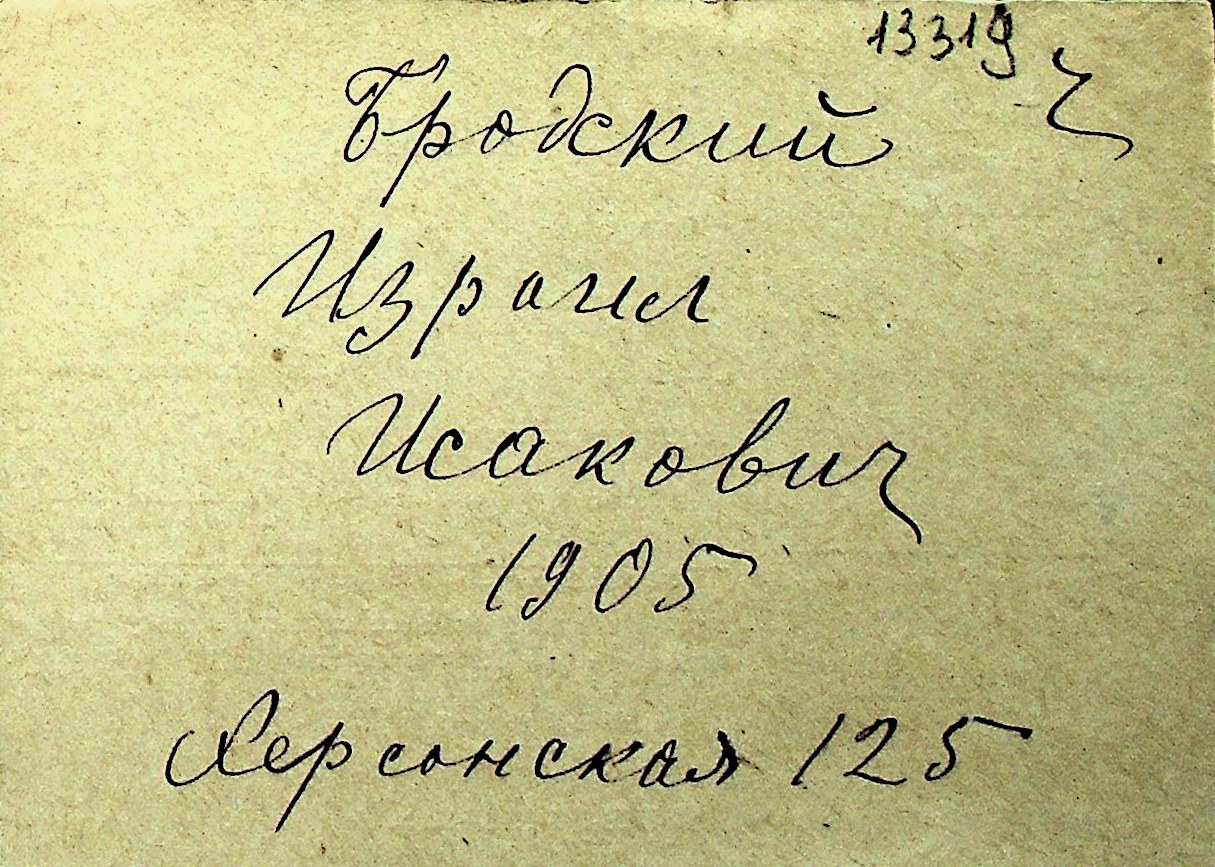 13319 ч
Бродский
Израил
Исакович
1905
Херсонская 125